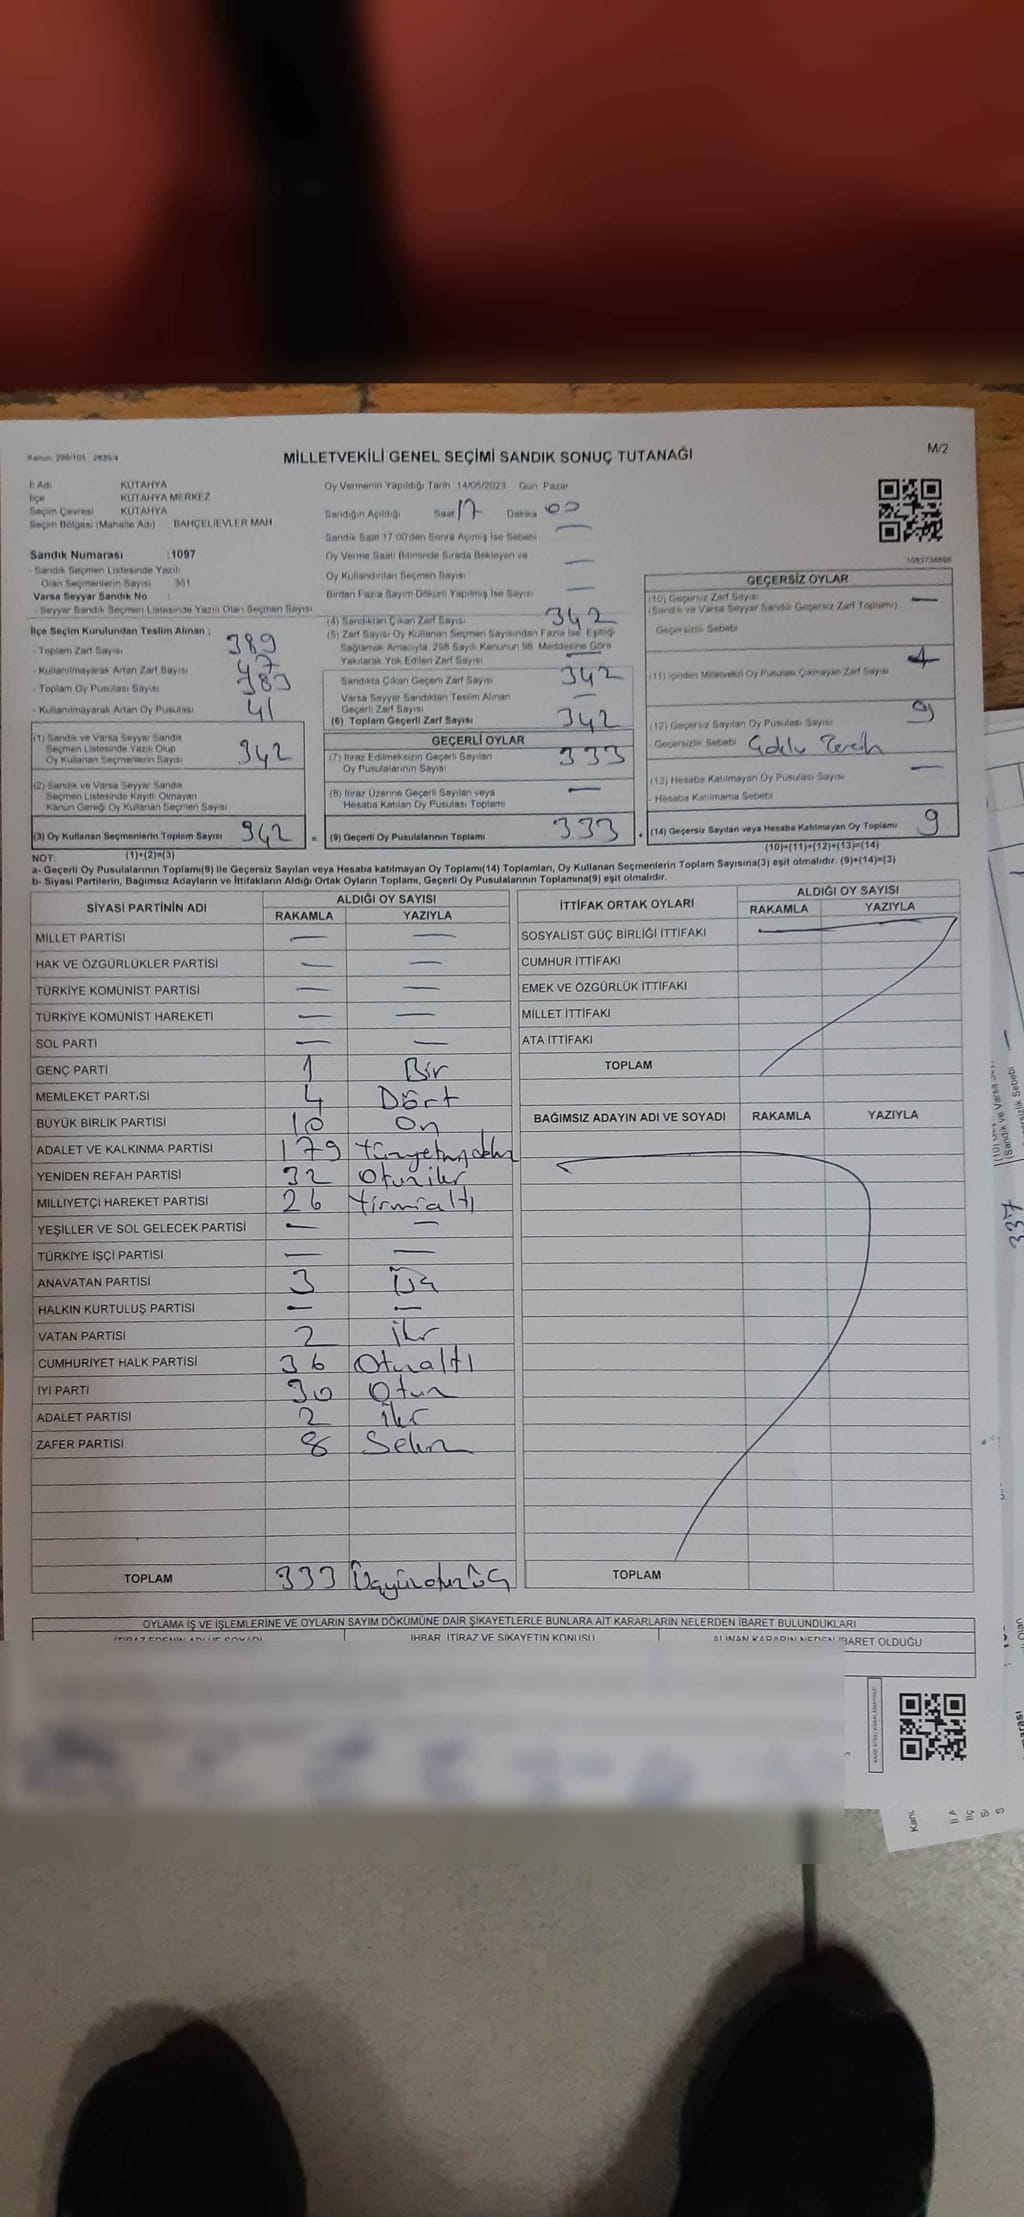 Kanun: 298/105 2839/4
MİLLETVEKİLİ GENEL SEÇİMİ SANDIK SONUÇ TUTANAĞI
M/2
İl Adı KÜTAHYA
İlçe KÜTAHYA MERKEZ
Seçim Çevresi KÜTAHYA
Seçim Bölgesi (Mahalle Adı) BAHÇELİEVLER MAH
Sandık Numarası :1097
- Sandık Seçmen Listesinde Yazılı
Olan Seçmenlerin Sayısı 381
Varsa Seyyar Sandık No :
- Seyyar Sandık Seçmen Listesinde Yazılı Olan Seçmen Sayısı
Oy Vermenin Yapıldığı Tarih 14/05/2023 Gün Pazar
Sandığın Açıldığı Saat 17 Dakika 00
Sandık Saat 17:00'den Sonra Açımış İse Sebebi —
Oy Verme Saati Bitiminde Sırada Bekleyen ve
Oy Kullandırılan Seçmen Sayısı —
Birden Fazla Sayım Döküm Yapılmış İse Sayısı —
İlçe Seçim Kurulundan Teslim Alınan ;
- Toplam Zarf Sayısı 389
- Kullanılmayarak Artan Zarf Sayısı 47
- Toplam Oy Pusulası Sayısı 383
- Kullanılmayarak Artan Oy Pusulası 41
(1) Sandık ve Varsa Seyyar Sandık
Seçmen Listesinde Yazılı Olup
Oy Kullanan Seçmenlerin Sayısı 342
(2) Sandık ve Varsa Seyyar Sandık
Seçmen Listesinde Kayıtlı Olmayan
Kanun Gereği Oy Kullanan Seçmen Sayısı
(3) Oy Kullanan Seçmenlerin Toplam Sayısı 342 =
(1)+(2)=(3)
(4) Sandıktan Çıkan Zarf Sayısı 342
(5) Zarf Sayısı Oy Kullanan Seçmen Sayısından Fazla İse, Eşitliği
Sağlamak Amacıyla, 298 Sayılı Kanunun 98. Maddesine Göre
Yakılarak Yok Edilen Zarf Sayısı —
Sandıkta Çıkan Geçerli Zarf Sayısı 342
Varsa Seyyar Sandıktan Teslim Alınan
Geçerli Zarf Sayısı —
(6) Toplam Geçerli Zarf Sayısı 342
GEÇERLİ OYLAR
(7) İtiraz Edilmeksizin Geçerli Sayılan
Oy Pusulalarının Sayısı 333
(8) İtiraz Üzerine Geçerli Sayılan veya
Hesaba Katılan Oy Pusulası Toplamı —
(9) Geçerli Oy Pusulalarının Toplamı 333 +
1083738896
GEÇERSİZ OYLAR
(10) Geçersiz Zarf Sayısı —
(Sandık ve Varsa Seyyar Sandık Geçersiz Zarf Toplamı)
Geçersizlik Sebebi
(11) İçinden Milletvekili Oy Pusulası Çıkmayan Zarf Sayısı
(12) Geçersiz Sayılan Oy Pusulası Sayısı 9
- Geçersizlik Sebebi Çoklu Tercih
(13) Hesaba Katılmayan Oy Pusulası Sayısı —
- Hesaba Katılmama Sebebi
(14) Geçersiz Sayılan veya Hesaba Katılmayan Oy Toplamı 9
(10)+(11)+(12)+(13)=(14)
NOT:
a- Geçerli Oy Pusulalarının Toplamı(9) ile Geçersiz Sayılan veya Hesaba katılmayan Oy Toplamı(14) Toplamları, Oy Kullanan Seçmenlerin Toplam Sayısına(3) eşit olmalıdır. (9)+(14)=(3)
b- Siyasi Partilerin, Bağımsız Adayların ve İttifakların Aldığı Ortak Oyların Toplamı, Geçerli Oy Pusulalarının Toplamına(9) eşit olmalıdır.
SİYASİ PARTİNİN ADI ALDIĞI OY SAYISI
RAKAMLA YAZIYLA
MİLLET PARTİSİ — —
HAK VE ÖZGÜRLÜKLER PARTİSİ — —
TÜRKİYE KOMÜNİST PARTİSİ — —
TÜRKİYE KOMÜNİST HAREKETİ — —
SOL PARTİ — —
GENÇ PARTİ 1 Bir
MEMLEKET PARTİSİ 4 Dört
BÜYÜK BİRLİK PARTİSİ 10 On
ADALET VE KALKINMA PARTİSİ 179
YENİDEN REFAH PARTİSİ 32 Otuziki
MİLLİYETÇİ HAREKET PARTİSİ 26 Yirmialtı
YEŞİLLER VE SOL GELECEK PARTİSİ — —
TÜRKİYE İŞÇİ PARTİSİ — —
ANAVATAN PARTİSİ 3 Üç
HALKIN KURTULUŞ PARTİSİ — —
VATAN PARTİSİ 2 iki
CUMHURİYET HALK PARTİSİ 36 Otuzaltı
İYİ PARTİ 30 Otuz
ADALET PARTİSİ 2 iki
ZAFER PARTİSİ 8 Sekiz
TOPLAM 333 Üçyüzotuzüç
İTTİFAK ORTAK OYLARI ALDIĞI OY SAYISI
RAKAMLA YAZIYLA
SOSYALİST GÜÇ BİRLİĞİ İTTİFAKI
CUMHUR İTTİFAKI
EMEK VE ÖZGÜRLÜK İTTİFAKI
MİLLET İTTİFAKI
ATA İTTİFAKI
TOPLAM
BAĞIMSIZ ADAYIN ADI VE SOYADI RAKAMLA YAZIYLA
TOPLAM
OYLAMA İŞ VE İŞLEMLERİNE VE OYLARIN SAYIM DÖKÜMÜNE DAİR ŞİKAYETLERLE BUNLARA AİT KARARLARIN NELERDEN İBARET BULUNDUKLARI
İTİRAZ EDENİN ADI VE SOYADI İHBAR, İTİRAZ VE ŞİKAYETİN KONUSU ALINAN KARARIN NEDEN İBARET OLDUĞU
337